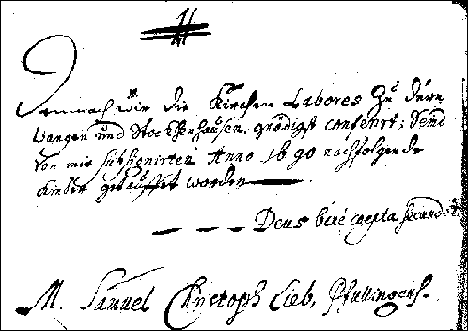 Demnach mir die Kirchen Labores zu Dürr
wangen und Stockenhausen, gnädigst conferirt; Seind
von mir subsignirten Anno 1690 nachfolgende
Kinder getauffet worden
Deus bene cœpta
M. Samuel Christoph Lieb, Pfullingens.